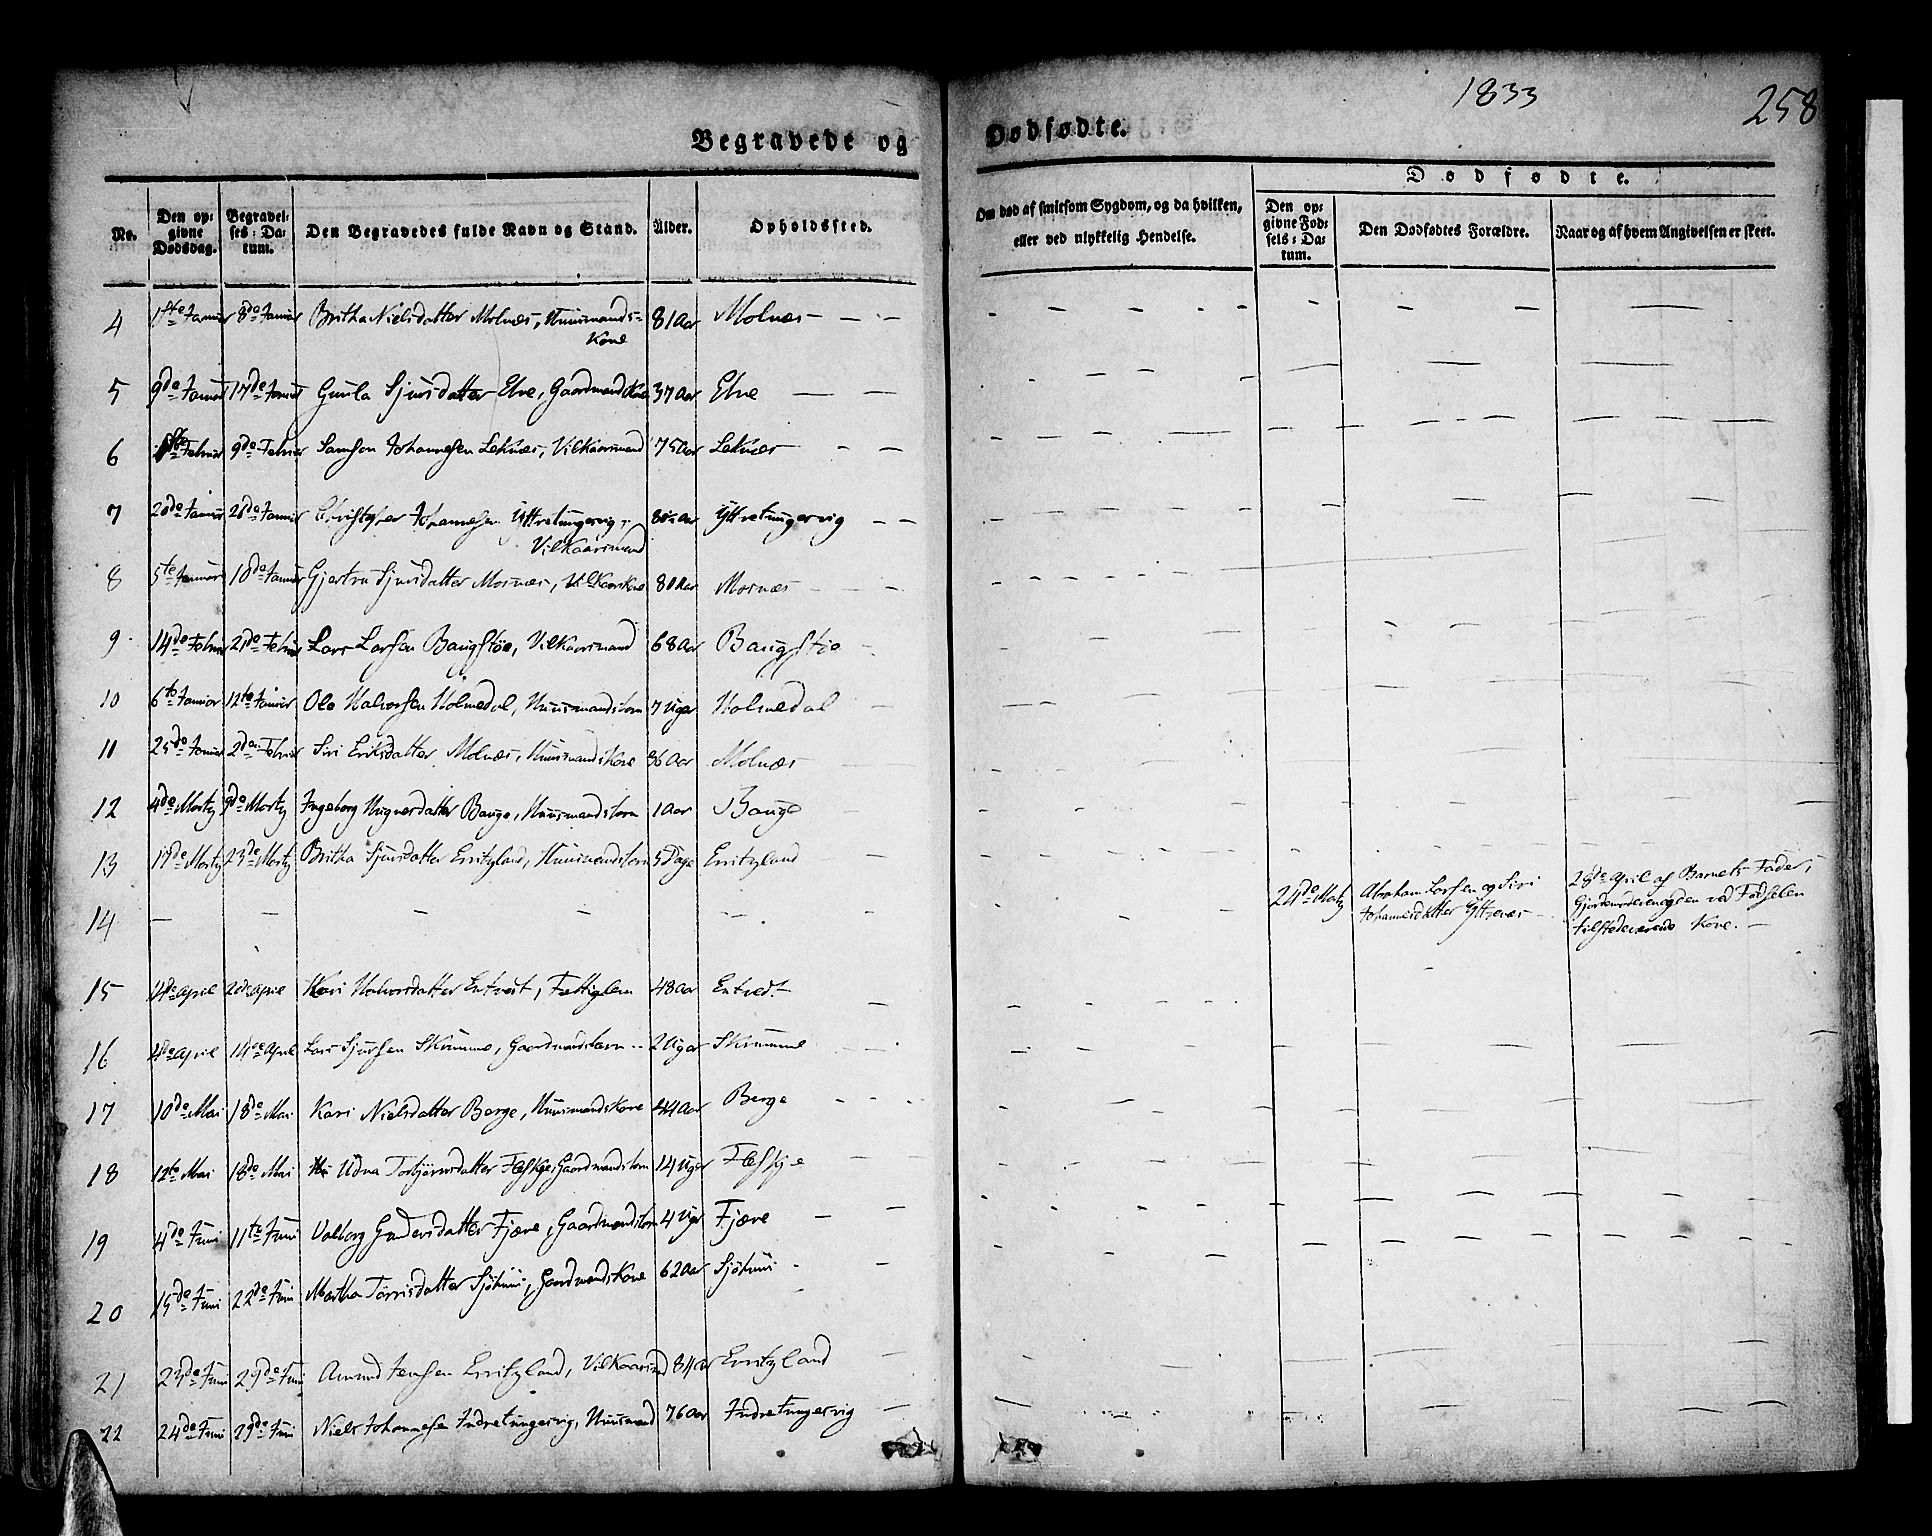 1833
258
Begravede og Dødfødte.
No. Den opgivne Dødsdag. Begravelses-Datum. Den Begravedes fulde Navn og Stand. Alder. Opholdssted. Om død af smitsom Sygdom, og da hvilken, eller ved ulykkelig Hendelse. Dødfødte. Den opgivne Fødsels-Datum. Den Dødfødtes Forældre. Naar og af hvem Angivelsen er skeet.
4 1ste Januar 8de Januar Britha Nielsdatter Molnæs, Huusmands-
Kone 81 Aar Molnæs
5 9de Januar 17de Januar Gunla Sjursdatter Elve, Gaardmands Kone 37 Aar Elve
6 Februar 9de Februar Samson Johannesen Leknæs, Vilkaarsmand 75 Aar Leknæs
7 20de Januar 26de Januar Christopher Johannesen Yttretungesvig,
Vilkaarsmand Aar Yttretungesvig
8 5te Januar 10de Januar Gjertru Sjursdatter Mosnæs, Vilkaarskone 80 Aar Mosnæs
9 14de Februar 21de Februar Lars Larsen Baugstøe, Vilkaarsmand 68 Aar Baugstøe
10 6te Januar 12te Januar Ole Halvorsen Holmedal, Huusmandsbarn 7 Uger Holmedal
11 25de Januar 2den Februar Siri Eriksdatter Molnæs, Huusmandskone 36 Aar Molnæs
12 4de Martz 9de Martz Ingeborg Magnesdatter Bauge, Huusmandsbarn 1 Aar Bauge
13 19de Martz 23de Martz Britha Sjursdatter Erritzland, Huusmandsbarn 5 Dage Erritzland
14 24de Martz Abraham Larsen og Siri
Johannesdatter Yttrevær 28de April af Barnets Fader,
Gjordemoderen og den ved Fødselen
tilstedeværende Kone.
15 4de April 20de April Kari Halvorsdatter Entvedt, Fattiglem 48 Aar Entvedt
16 4de April 14de April Lars Sjursen Skrumme, Gaardmandsbarn 2 Uger Skrumme
17 10de Mai 18de Mai Kari Nielsdatter Berge, Huusmandskone 44 Aar Berge
18 12te Mai 18de Mai Udna Torbjørnsdatter Fleskje, Gaardmandsbarn 14 Uger Fleskje
19 4de Juni 11te Juni Valborg Gudersdatter Fjære, Gaardmandsbarn 4 Uger Fjære
20 15de Juni 22de Juni Martha Tørrisdatter Sjøtuni, Gaardmandskone 62 Aar Sjøtuni
21 23de Juni 29de Juni Amund Jensen Erritzland, Vilkaarsmand 84 Aar Erritzland
22 24de Juni 29de Juni Niels Johannesen Indretungesvig, Huusmand 76 Aar Indretungesvig